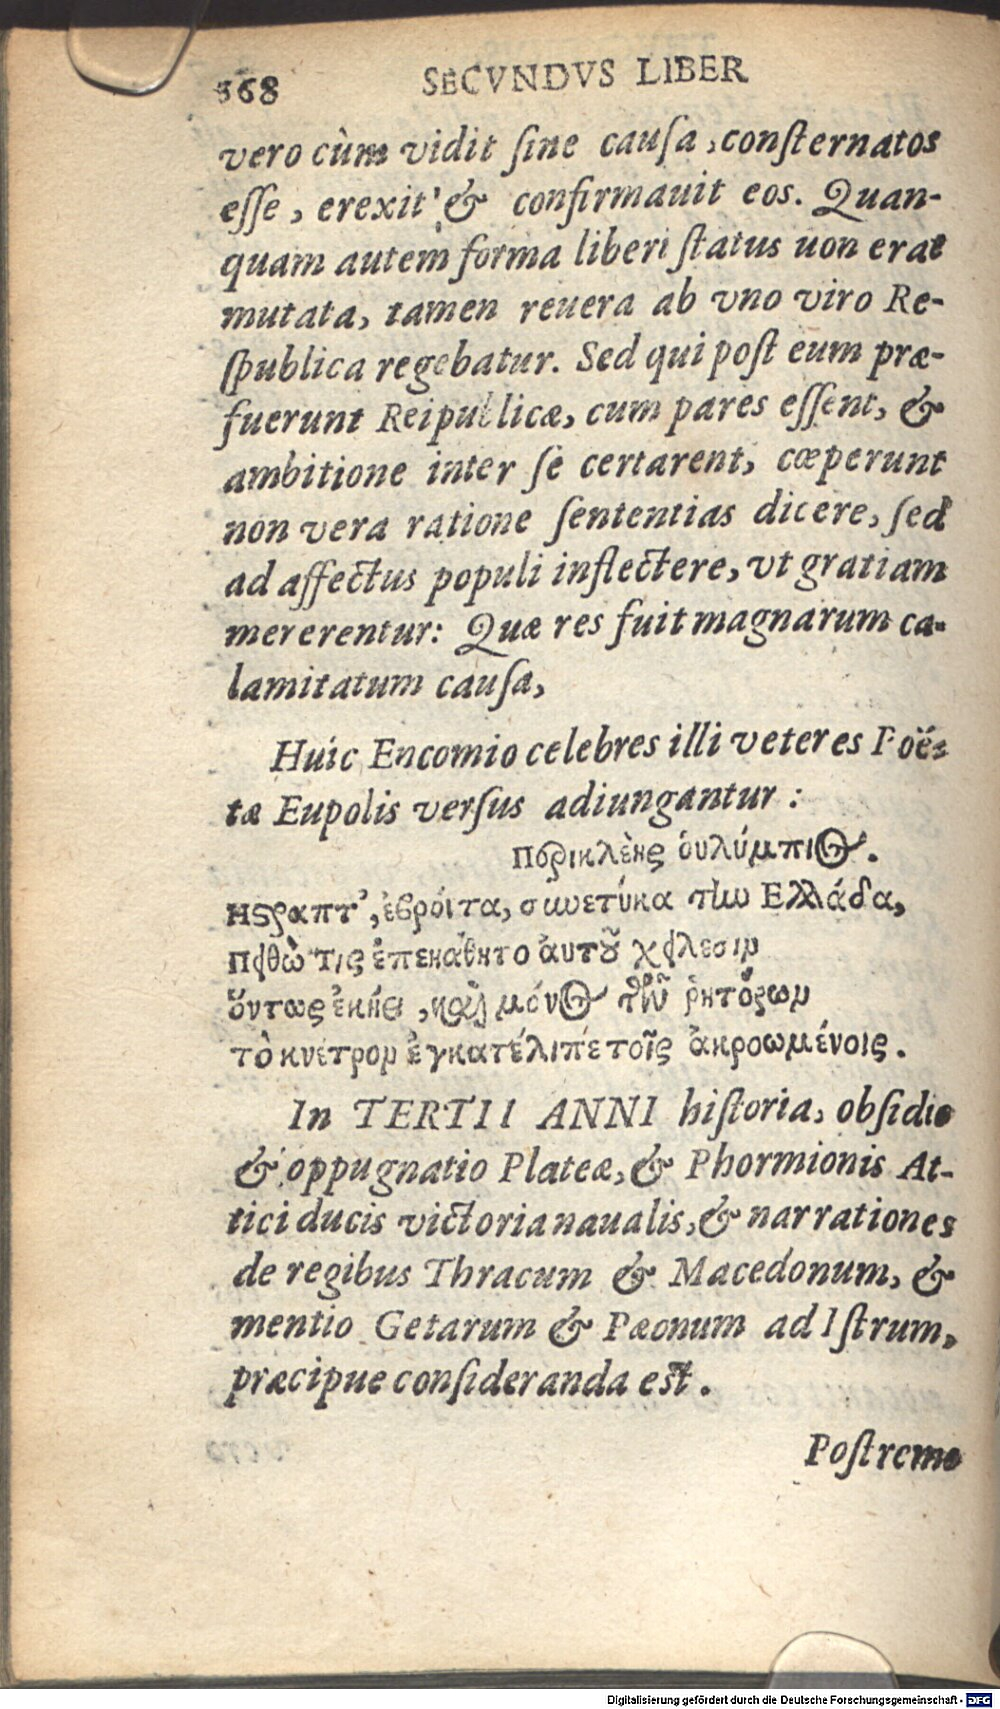 368 SECVNDVS LIBER
vero cùm vidit sine causa, consternatos
esse, erexit & confirmauit eos. Quan-
quam autem forma liberi status uon erat
mutata, tamen reuera ab vno viro Re-
spublica regebatur. Sed qui post eum præ-
fuerunt Reipublicæ, cum pares essent, &
ambitione inter se certarent, cœperunt
non vera ratione sententias dicere, sed
ad affectus populi inflectere, vt gratiam
mererentur: Quæ res fuit magnarum ca-
lamitatum causa,
Huic Encomio celebres illi veteres Poë-
tæ Eupolis versus adiungantur:
Περικλέης ὁυλύμπιος.
Ηςραπτ', ἐβρόιτα, συνετύκα τὴν Ελλάδα,
Πειθὼ τις ἐπεκάθητο ἀυτοῦ χείλεσιν
ὅυτως ἐκήλει, καὶ μόνος τῶν ῥητόρων
τὸ κνέτρον ἐγκατέλιπε τοῖς ἀκροωμένοις.
In TERTII ANNI historia, obsidio
& oppugnatio Plateæ, & Phormionis At-
tici ducis victoria naualis, & narrationes
de regibus Thracum & Macedonum, &
mentio Getarum & Pæonum ad Istrum,
præcipue consideranda est.
Postremo
Digitalisierung gefördert durch die Deutsche Forschungsgemeinschaft - DFG